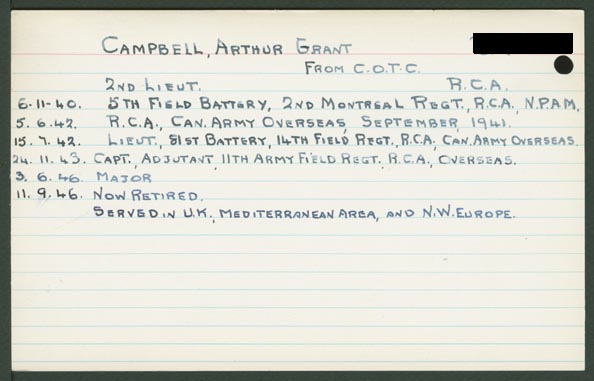 CAMPBELL, ARTHUR GRANT
FROM C.O.T.C.
2ND LIEUT. R.C.A.
6.11-40. 5TH FIELD BATTERY, 2ND MONTREAL REGT., R.C.A., N.P.A.M.
5. 6.42. R.C.A., CAN. ARMY OVERSEAS, SEPTEMBER, 1941.
15. 7. 42. LIEUT., 81ST BATTERY, 14TH FIELD REGT., R.C.A., CAN. ARMY OVERSEAS.
24. 11. 43. CAPT., ADJUTANT, 11TH ARMY FIELD REGT. R.C.A., OVERSEAS.
3. 6. 46. MAJOR
11. 9. 46. NOW RETIRED.
SERVED IN U.K., MEDITERRANEAN AREA, AND N.W. EUROPE.